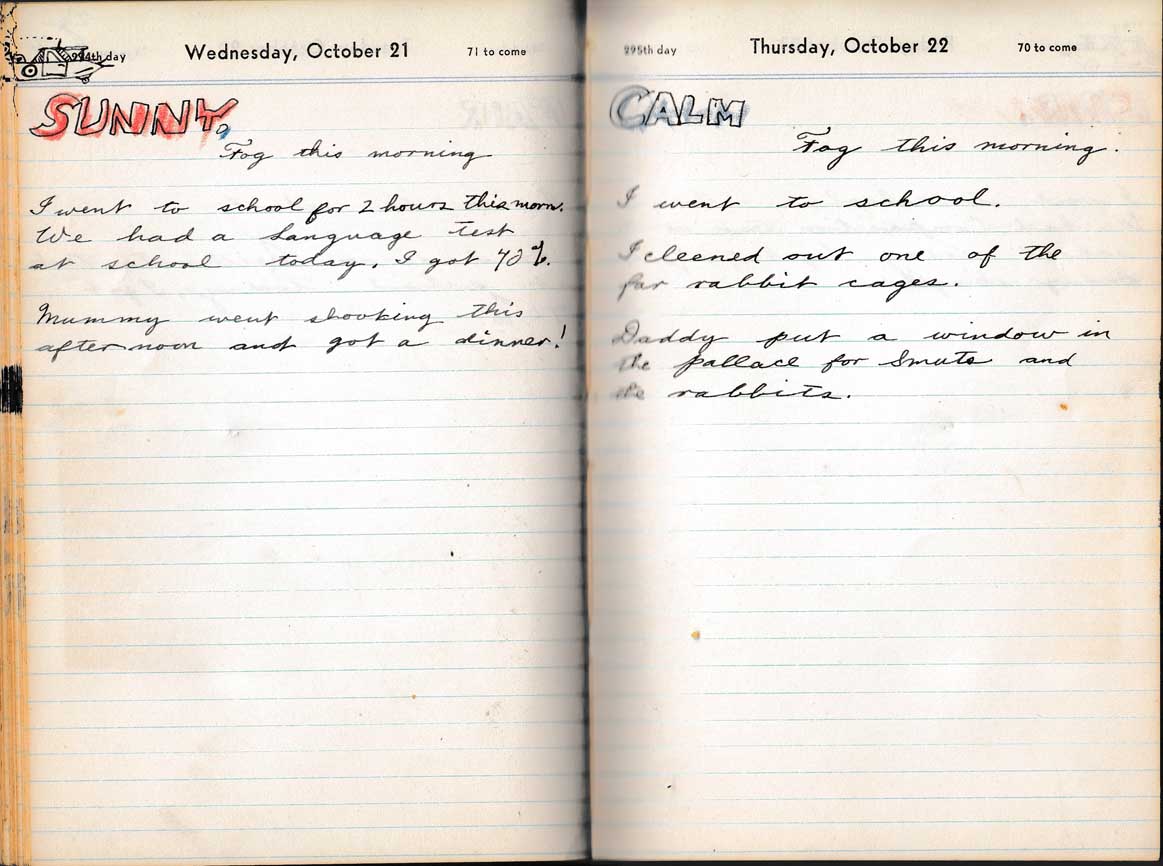 294th day Wednesday, October 21 71 to come
SUNNY,
Fog this morning
I went to school for 2 hours this morn.
We had a Language Test
at school today. I got 90%.
Mummy went shooting this
afternoon and got a dinner!
295th day Thursday, October 22 70 to come
CALM
Fog this morning.
I went to school.
I cleened out one of the
far rabbit cages.
Daddy put a window in
the pallace for Smuts and
the rabbits.